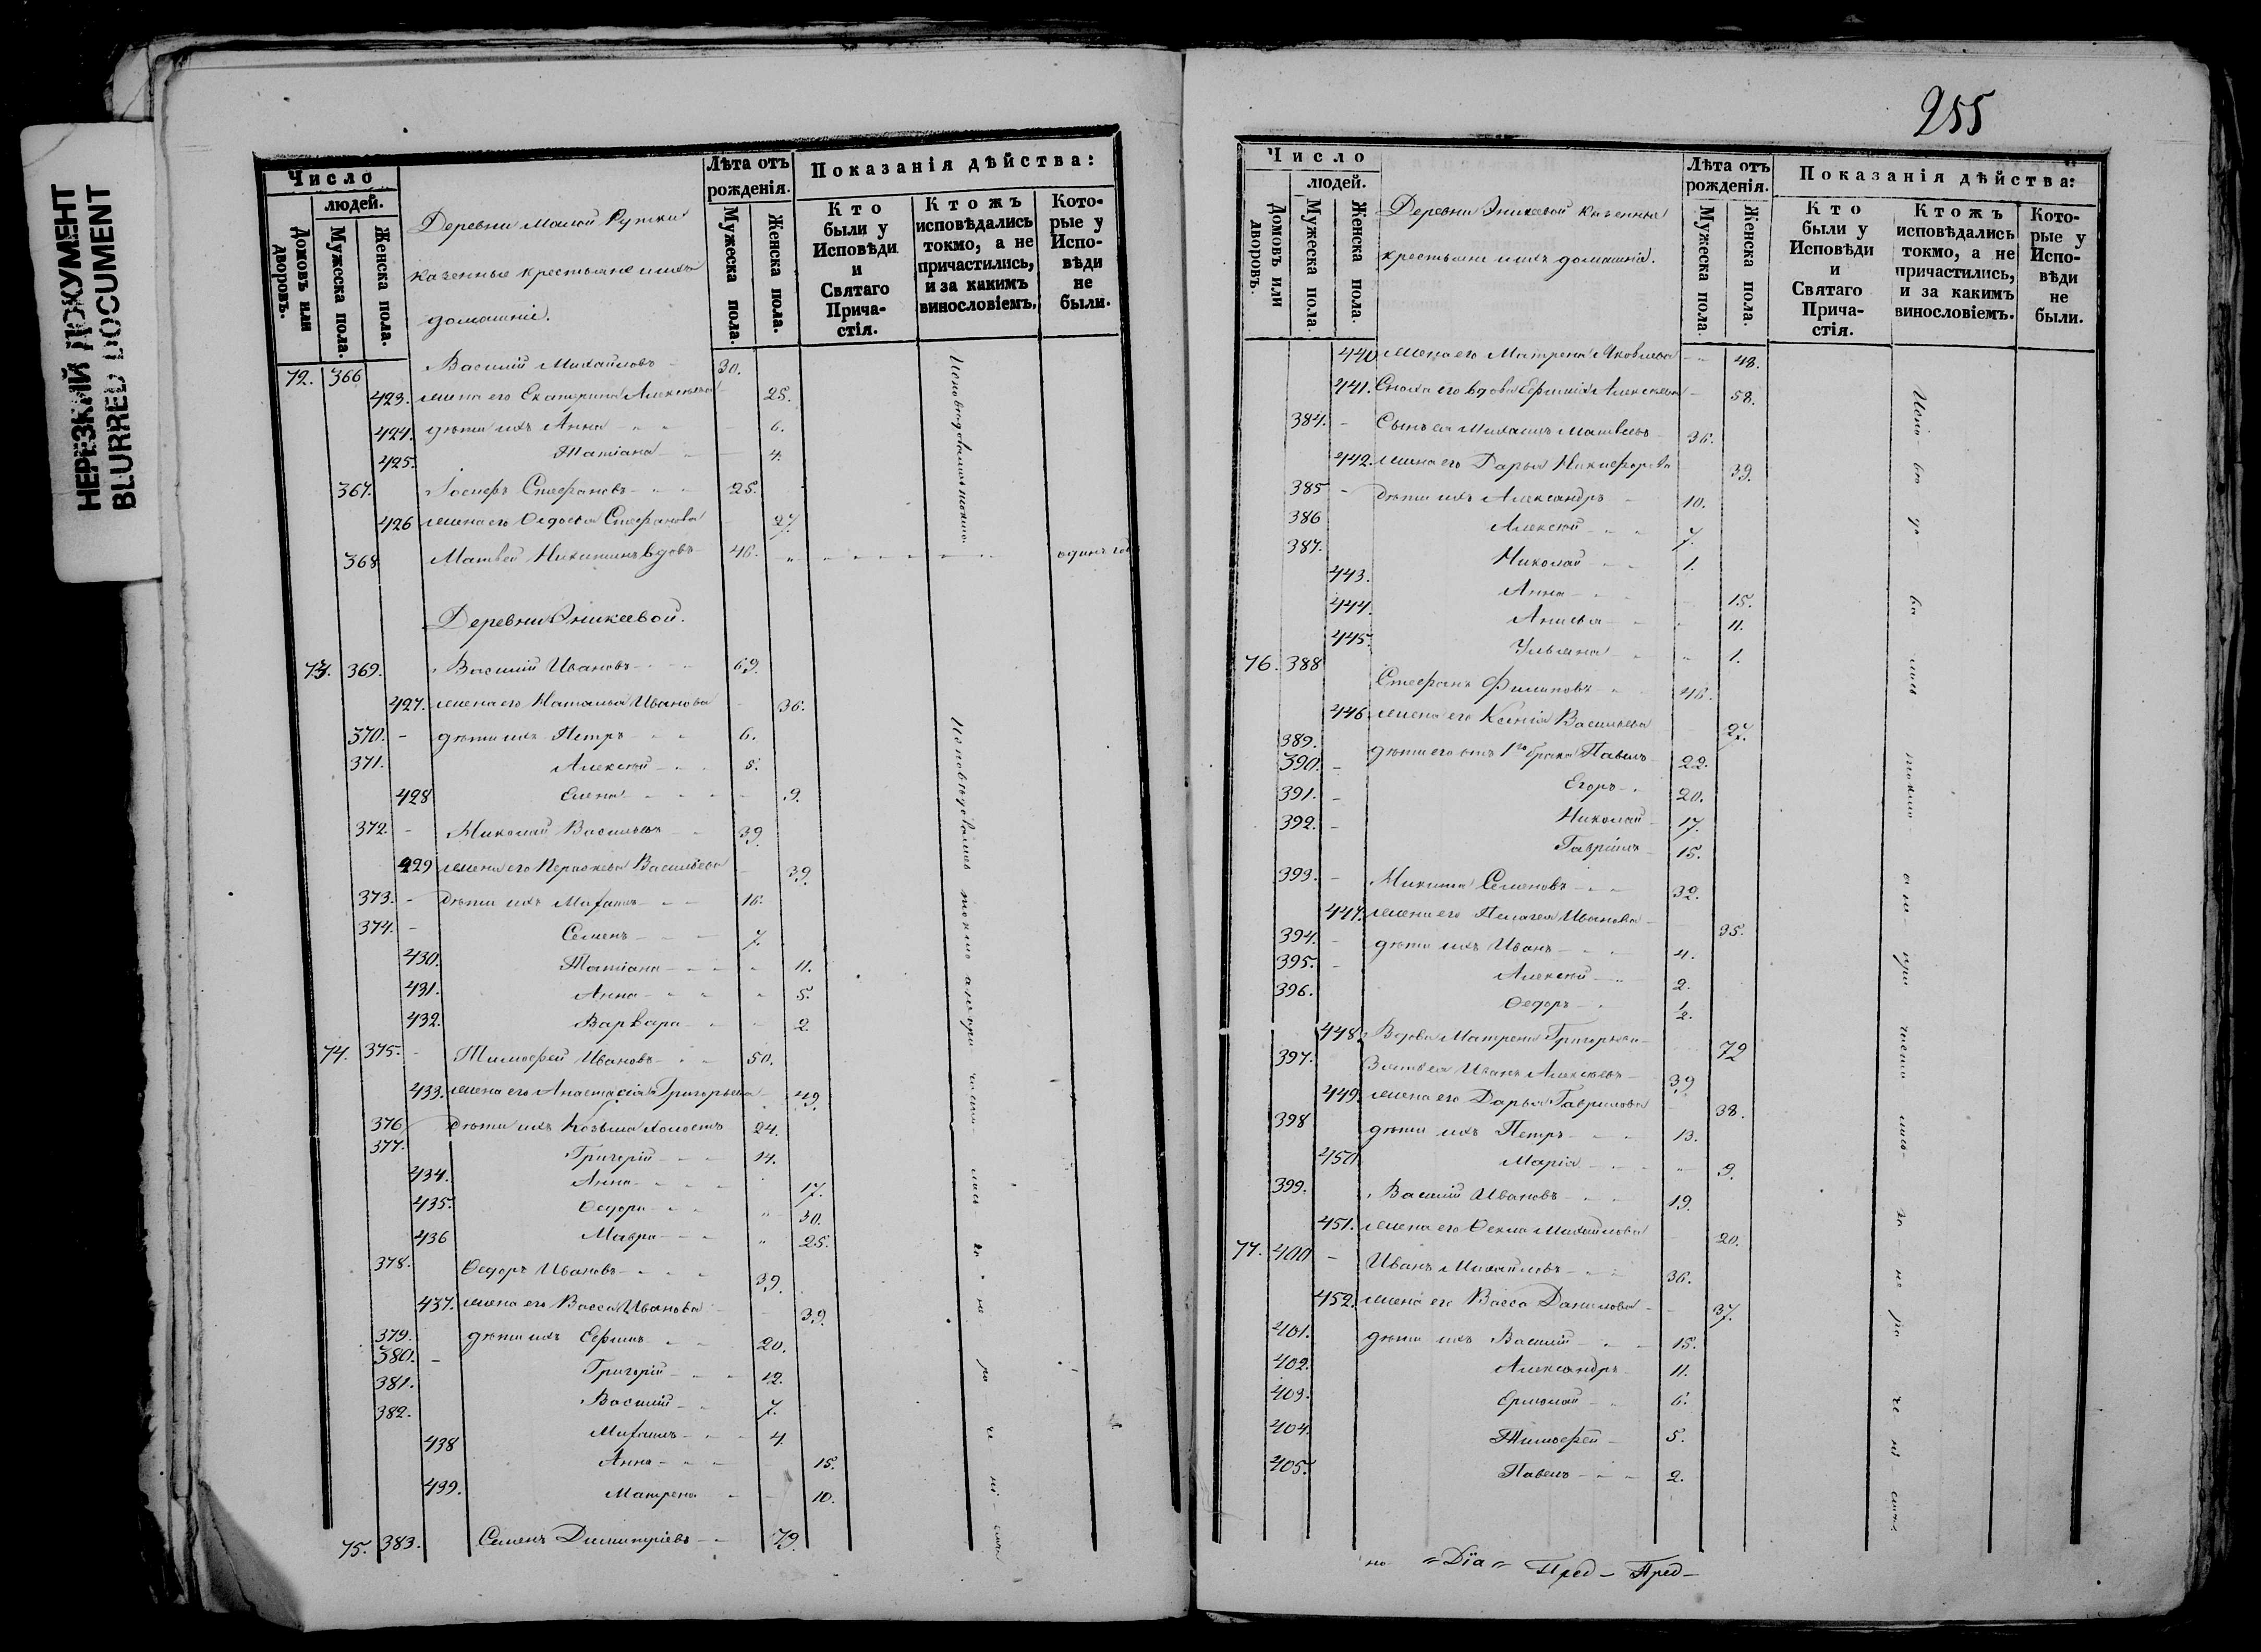 НЕРЕЗКИЙ ДОКУМЕНТ
BLURRED DOCUMENT
Число
людей.
Домовъ или дворовъ.
Мужеска пола.
Женска пола.
Деревни Малой Рутки
казенные крестьяне и ихъ
домашніе.
Лѣта отъ рожденія.
Мужеска пола.
Женска пола.
Показанія дѣйства:
Кто были у Исповѣди и Святаго Прича-стія.
Ктожъ исповѣдались токмо, а не причастились, и за какимъ винословіемъ.
Кото-рые у Испо-вѣди не были.
72. 366 Василій Михайловъ 30.
423. жена его Екатерина Алексѣева 25.
424. дѣти ихъ Анна 6.
425. Татіана 4.
367. Іосифъ Стефановъ 25.
426 жена его Ѳедосья Стефанова 27.
368 Матвей Никитинъ вдовъ 46. одинъ годъ
Исповѣдовались токмо.
Деревни Аникеевой.
73. 369. Василій Ивановъ 69.
427. жена его Наталья Иванова 36.
370. дѣти ихъ Петръ 6.
371. Алексѣй 5.
428 Елена 9.
372. Николай Васильевъ 39.
429 жена его Параскева Васильева 39.
373. Дѣти ихъ Михаилъ 16.
374. Семенъ 7.
430. Татіана 11.
431. Анна 5.
432. Варвара 2.
74. 375. Тимофей Ивановъ 50.
433. жена его Анастасія Григорьева 49.
376 Дѣти ихъ Козьма холостъ 24.
377. Григорій 14.
434. Анна 17.
435. Ѳедора 30.
436 Мавра 25.
378. Ѳедоръ Ивановъ 39.
437. жена его Васса Иванова 39.
379. дѣти ихъ Ефимъ 20.
380. Григорій 12.
381. Василій 7.
382. Михаилъ 4.
438 Анна 15.
439. Матрена 10.
75. 383. Семенъ Димитріевъ 79.
Исповѣдовались токмо а не причастились за нераченіемъ
255
Число
людей.
Домовъ или дворовъ.
Мужеска пола.
Женска пола.
Деревни Аникеевой казенные
крестьяне и ихъ домашніе.
Лѣта отъ рожденія.
Мужеска пола.
Женска пола.
Показанія дѣйства:
Кто были у Исповѣди и Святаго Прича-стія.
Ктожъ исповѣдались токмо, а не причастились, и за какимъ винословіемъ.
Кото-рые у Испо-вѣди не были.
440 жена его Матрена Яковлева 48.
441. Сноха его вдова Ефимія Алексѣева 58.
384. Сынъ ея Михаилъ Матвѣевъ 36.
442. жена его Дарья Никифорова 39.
385 дѣти ихъ Александръ 10.
386 Алексѣй 7.
387. Николай 1.
443. Анна 15.
444. Анисья 11.
445. Ульяна 1.
76. 388 Стефанъ Филиповъ 46.
446. жена его Ксенія Васильева 27.
389. дѣти его отъ 1го брака Павелъ 22.
390. Егоръ 20.
391. Николай 17.
392. Гавріилъ 15.
393. Никита Семеновъ 32.
447. жена его Пелагея Иванова 35.
394. дѣти ихъ Иванъ 4.
395. Алексѣй 2.
396. Ѳедоръ ½.
448. Вдова Матрена Григорьева 72
397. Зять ея Иванъ Алексѣевъ 39
449. жена его Дарья Гаврилова 38.
398 дѣти ихъ Петръ 13.
450 Марія 9.
399. Василій Ивановъ 19.
451. жена его Ѳекла Михайлова 20.
77. 400 Иванъ Михайловъ 36.
452. жена его Васса Данилова 37.
401. дѣти ихъ Василій 15.
402. Александръ 11.
403. Ермолай 6.
404. Тимофей 5.
405. Павелъ 2.
Исповѣдовались токмо а не причастились за нераченіемъ
но Dïa Пред- Пред-